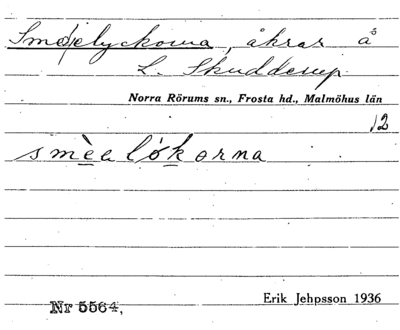 Sme(d)jelyckorna, åkrar å
L. Skudderup.
Norra Rörums sn., Frosta hd., Malmöhus län
12
smèalókorna
Nr 5564,
Erik Jehpsson 1936